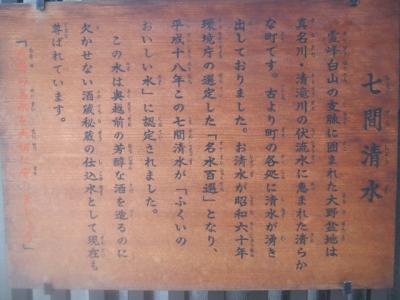 七間清水
霊峰白山の支脈に囲まれた大野盆地は
真名川・清滝川の伏流水に恵まれた清らか
な町です。古より町の各処に清水が湧き
出しておりました。お清水が昭和六十年
環境庁の選定した「名水百選」となり、
平成十八年この七間清水が「ふくいの
おいしい水」に認定されました。
この水は奥越前の芳醇な酒を造るのに
欠かせない酒蔵秘蔵の仕込水として現在も
尊ばれています。